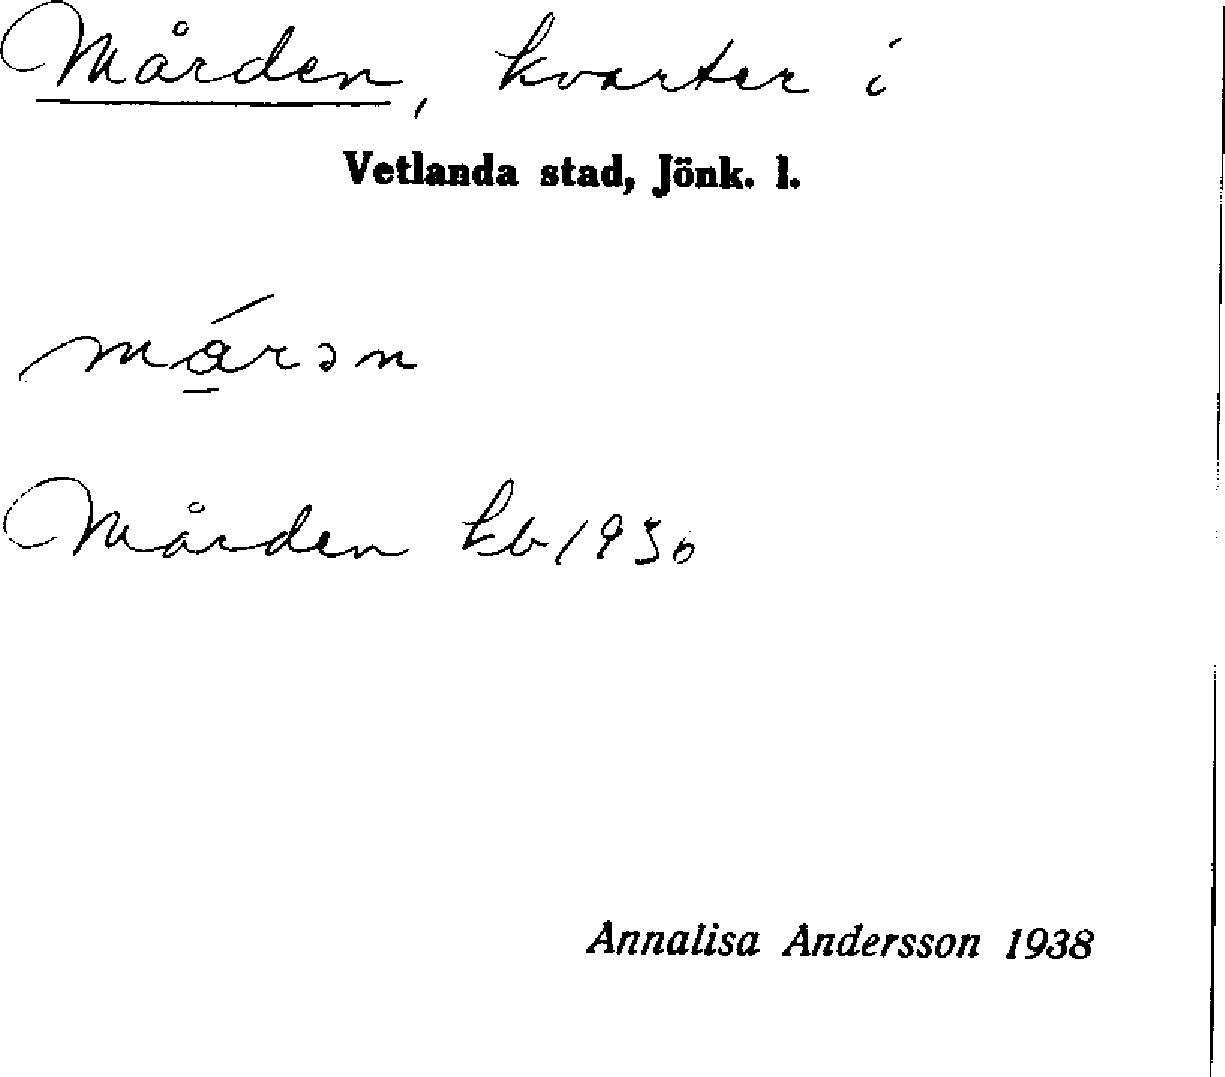 Mården, kvarter i
Vetlanda stad, Jönk. l.
mǻ̱rən
Mården kb 1930
Annalisa Andersson 1938